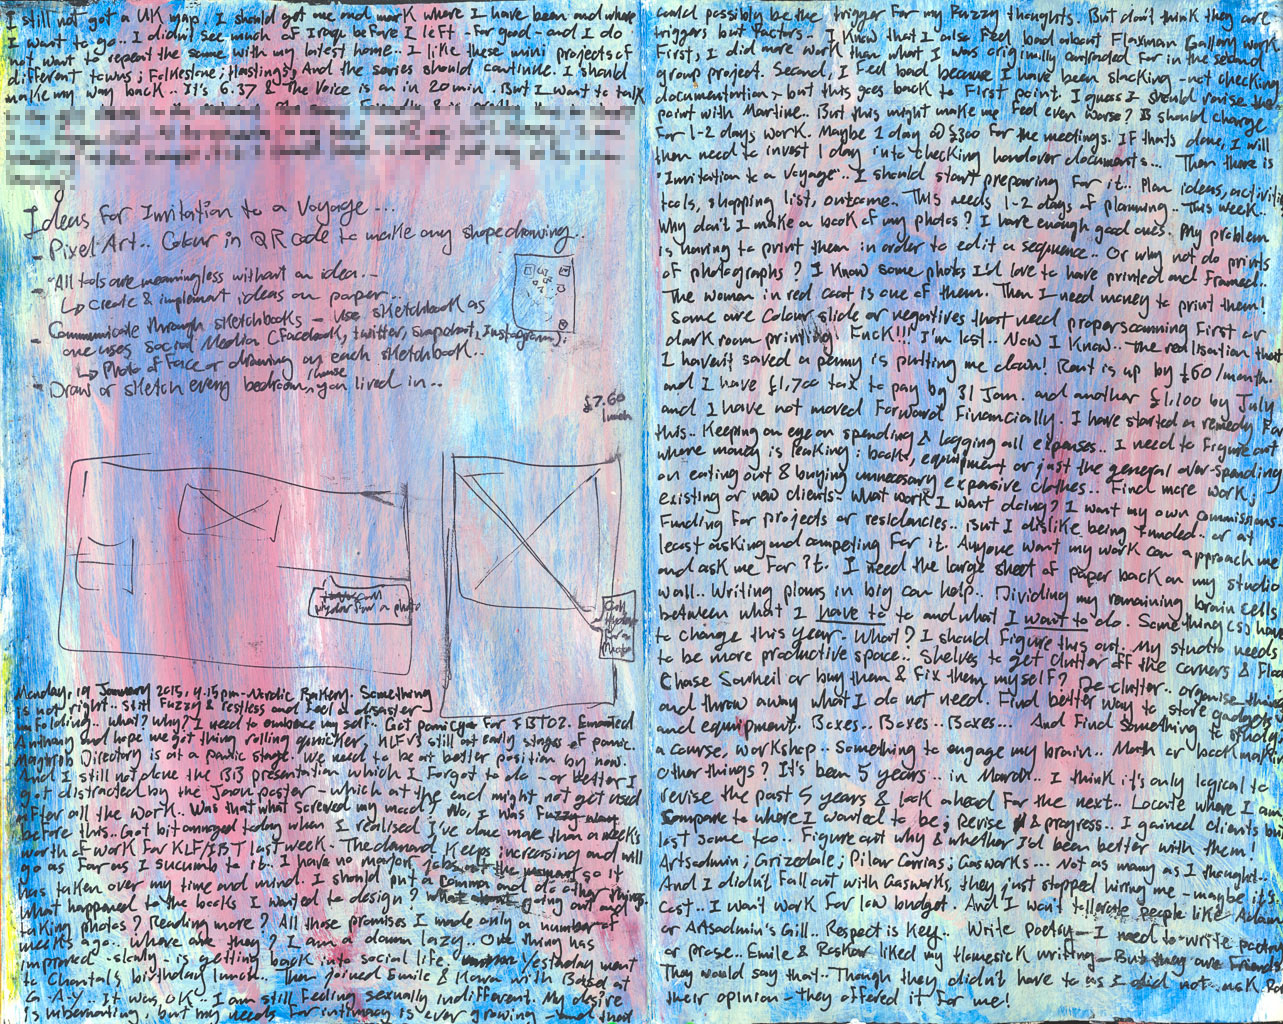 I still not got a UK map. I should get me and mark where I have been and where
I want to go.. I didn't see much of Iraq before I left - for good - and I do
not want to repeat the same with my latest home.. I like these mini projects of
different towns; Folkestone; Hastings; And the series should continue. I should
make my way back.. It's 6.37 & The Voice is on in 20 min. But I want to talk
Ideas for Invitation to a Voyage...
- Pixel Art.. Colour in QR code to make any shape drawing..
- "All tools are meaningless without an idea..
↳ Create & implement ideas on paper...
- Communicate through sketchbooks - Use sketchbook as
one uses Social Media (Facebook, twitter, snapchat, Instagram);
↳ Photo of Face or drawing on each sketchbook...
- Draw or sketch every bedroom/house you lived in..
£7.60
lunch
for a photo
Call
for a
Monday, 19 January 2015, 4.15pm - Nordic Bakery. Something
is not right.. Still Fuzzy & restless and feel a disaster
is folding.. what? why? I need to embrace my self. Got panicky for IBT02. Emailed
Anthony and hope we get thing rolling quicker, KLFVS still at early stages of panic.
Maghreb Directory is at a panic stage. We need to be at better position by now.
And I still not done the BB presentation which I forgot to do - or better I
got distracted by the Joan poster - which at the end might not get used
after all the work.. Was that what screwed my mood? No, I was Fuzzy
before this. Got bit annoyed today when I realised I've done more than a week's
worth of work for KLF/IBT last week - The demand keeps increasing and will
go as far as I sucumb to it. I have no major jobs at the moment so it
has taken over my time and mind. I should put a comma and do other things
what happened to the books I wanted to design? going out and
taking photos? Reading more? All those promises I made only a number of
weeks ago.. where are they? I am a damn lazy.. One thing has
improved - slowly - is getting back to social life. Yesterday went
to Chantal's birthday lunch.. Then joined Emile & with Based at
G.A.Y.. It was, OK.. I am still feeling sexually indifferent. My desire
is hibernating, but my needs for intimacy is ever growing - and that
could possibly be the trigger for my fuzzy thoughts. But don't think they are
triggers but factors.. I know that I also feel bad about Flaxman Gallery work
First, I did more work than what I was originally contracted for in the second
group project. Second, I feel bad because I have been slacking - not checking
documentation - but this goes back to first point. I guess I should raise that
point with Martine.. But this might make me feel even worse? I should charge
for 1-2 days work. Maybe 1 day @ £300 for the meetings. If thats done, I will
then need to invest 1 day into checking handover documents... Then there is
"Invitation to a Voyage".. I should start preparing for it.. Plan ideas, activities
tools, shopping list, outcome. This needs 1-2 days of planning - This week..
Why don't I make a book of my photos? I have enough good ones. My problem
is having to print them in order to edit a sequence.. Or why not do prints
of photographs? I know some photos I'd love to have printed and framed..
The woman in red coat is one of them. Then I need money to print them!
Some are colour slide or negatives that need proper scanning first or
dark room printing! Fuck!!! I'm lost.. Now I know.. The realisation that
I haven't saved a penny is putting me down! Rent is up by £60/month.
and I have £1,700 tax to pay by 31 Jan. and another £1,100 by July
and I have not moved forward financially. I have started a remedy for
this.. Keeping an eye on spending & logging all expenses.. I need to figure out
where money is leaking: books, equipment or just the general over-spending
on eating out & buying unnecessary expensive clothes.. Find more work;
existing or new clients - What work I want doing? I want my own commissions -
Funding for projects or residencies.. But I dislike being funded.. or at
least asking and competing for it. Anyone want my work can approach me
and ask me for it. I need the large sheet of paper back on my studio
wall.. Writing plans in big can help.. Dividing my remaining brain cells
between what I have to and what I want to do. Something(s) have
to change this year. What? I should figure this out.. My studio needs
to be more productive space.. Shelves to get clutter off the corners & floor
Chase Souheil or buy them & fix them myself? De-clutter.. organise things
and throw away what I do not need. Find better way to store gadgets
and equipment. Boxes.. Boxes.. Boxes... And find something to study;
a course, workshop.. Something to engage my brain.. Math or book making
other things? It's been 5 years.. in March.. I think it's only logical to
revise the past 5 years & look ahead for the next.. Locate where I am
Compare to where I wanted to be; Revise & progress.. I gained clients but
lost some too.. Figure out why & whether I'd been better with them!
Artsadmin; Grizedale; Pilar Corrias; Gasworks... Not as many as I thought..
And I didn't fall out with Gasworks, they just stopped hiring me - maybe it's
cost.. I won't work for low budget. And I won't tollerate people like Adam
or Artsadmin's Gill.. Respect is key.. Write Poetry - I need to write poetry
or prose.. Emile & Reskar liked my Homesick writing - But they are friends
They would say that.. Though they didn't have to as I did not ask for
their opinion - they offered it for me!